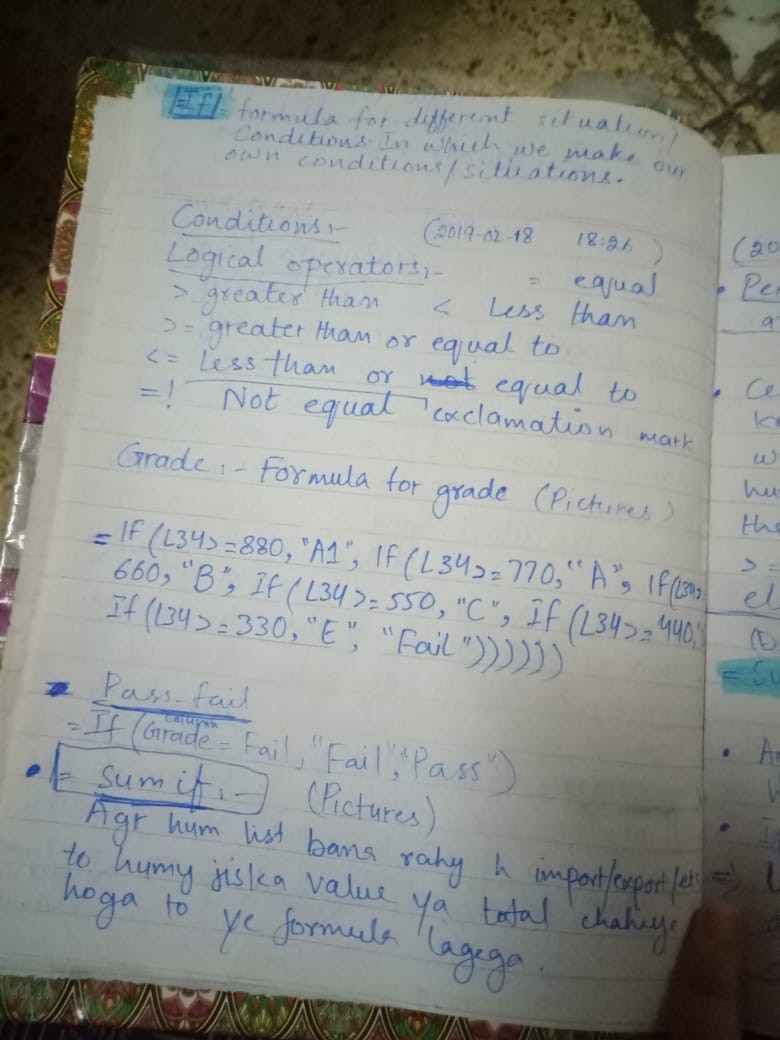 =If formula for different situation/
Conditions. In which we make our
own conditions/situations.
Conditions:- (2019-02-18 18:26)
Logical operators:- = equal
> greater than < Less than
>= greater than or equal to
<= Less than or equal to
=! Not equal exclamation mark
Grade:- Formula for grade (Pictures)
= If (L34>=880, "A1", If (L34>=770, "A", If (L34>=
660, "B", If (L34>=550, "C", If (L34>=440,
If (L34>=330, "E", "Fail"))))))
Pass-fail
column
= If (Grade = Fail, "Fail", "Pass")
• = Sum if:- (Pictures)
Agr hum list bana rahy h import/export/etc =>
to humy jiska value ya total chahiye
hoga to ye formula lagega.
(20
• Per
a
• Ce
K
w
hu
the
>=
el
= Su
• A
•